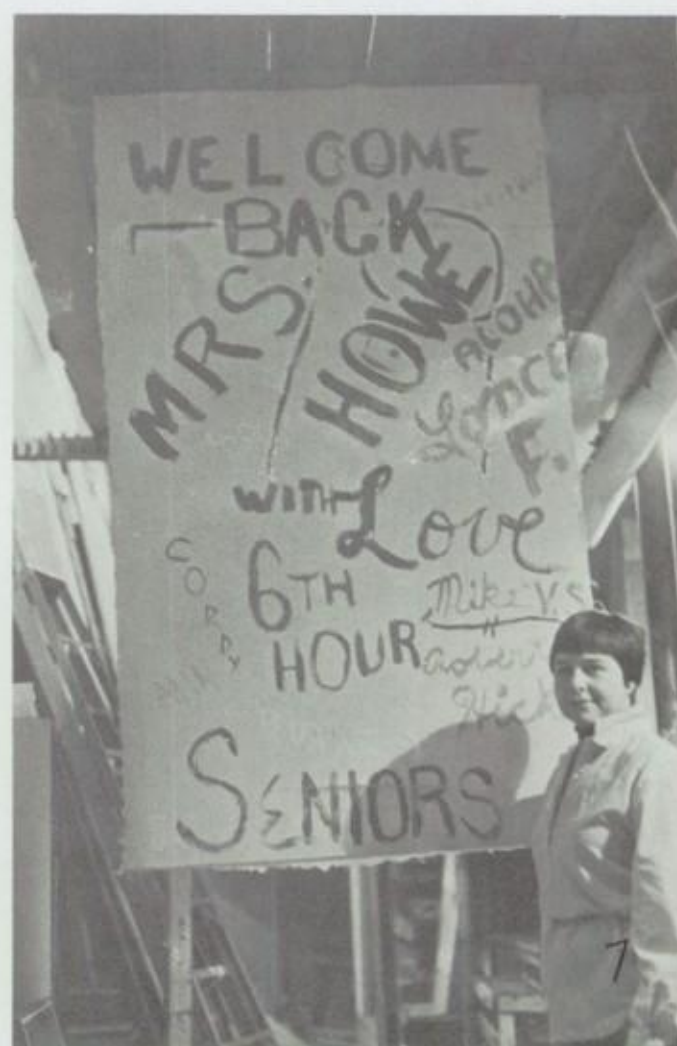 WELCOME
BACK
MRS. HOWE
ALOHA
F.
WITH Love
CORRY
6TH
HOUR
Mike V.S
SENIORS
7